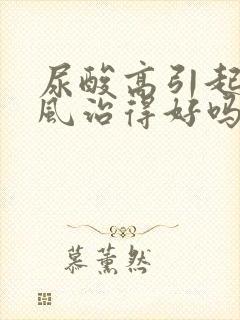 尿酸高引起
风治得好吗
慕薰然